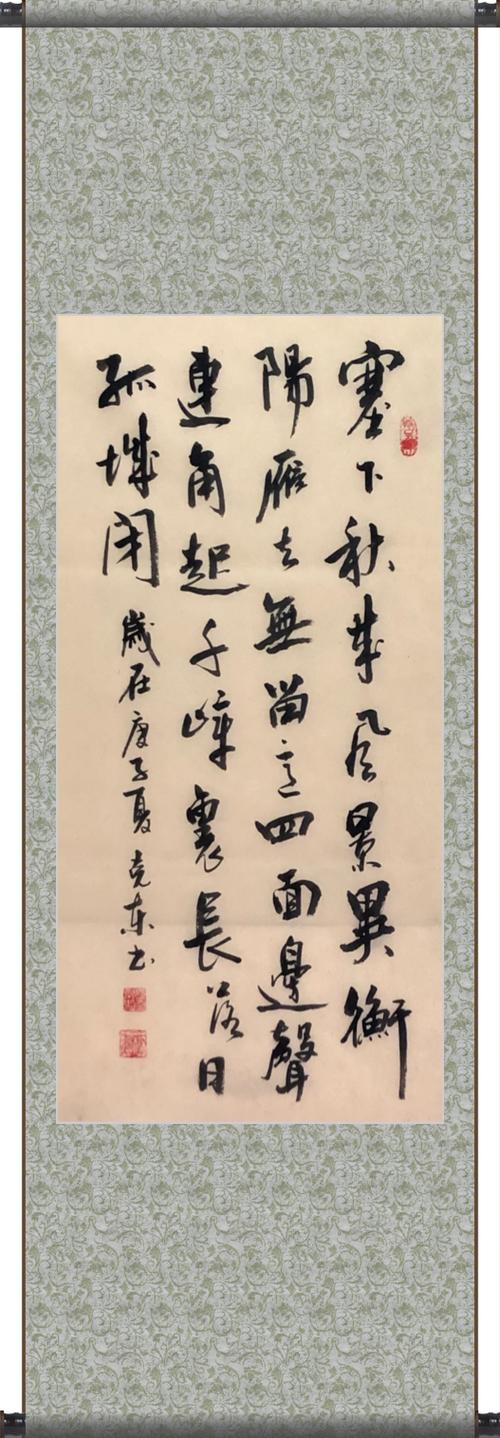 塞下秋来风景異衡
陽雁去無留意四面邊聲
連角起千嶂裏長落日
孤城闭 歲在庚子夏 克东书